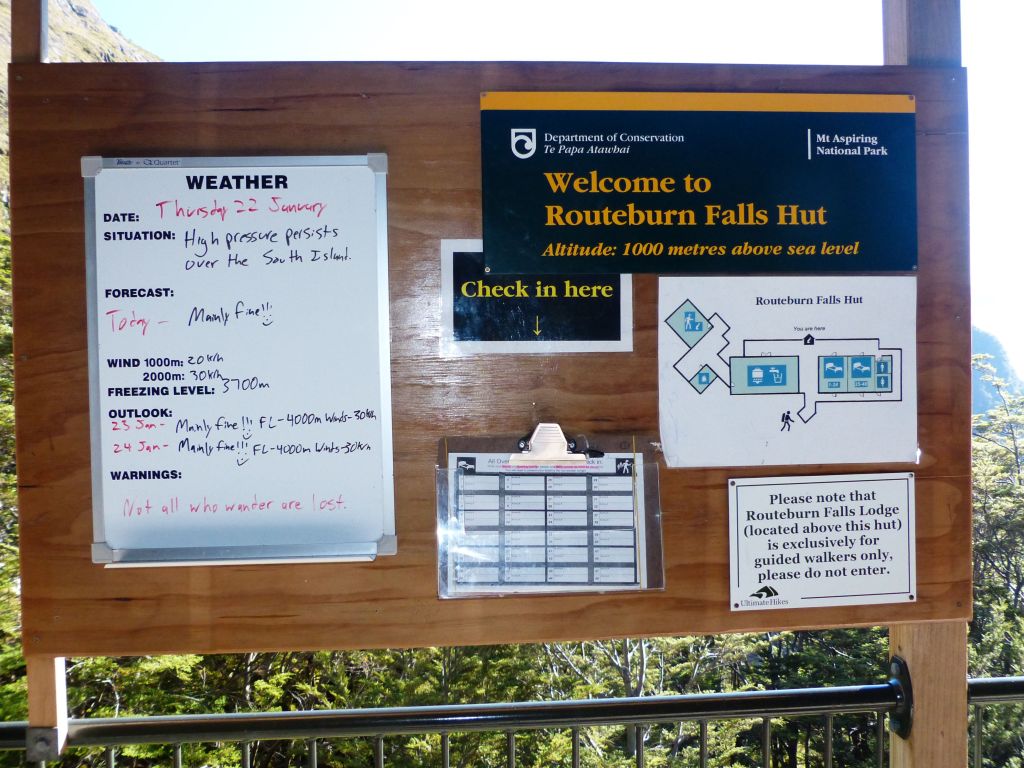 Quartet
WEATHER
DATE: Thursday 22 January
SITUATION: High pressure persists
over the South Island.
FORECAST:
Today - Mainly fine!!
WIND 1000m: 20 km/h
2000m: 30 km/h
FREEZING LEVEL: 3700m
OUTLOOK:
23 Jan - Mainly fine!!! FL-4000m Winds-30km
24 Jan - Mainly fine!!! FL-4000m Winds-30km
WARNINGS:
Not all who wander are lost.
Department of Conservation
Te Papa Atawhai
Mt Aspiring
National Park
Welcome to
Routeburn Falls Hut
Altitude: 1000 metres above sea level
Check in here
Routeburn Falls Hut
You are here
Please note that
Routeburn Falls Lodge
(located above this hut)
is exclusively for
guided walkers only,
please do not enter.
UltimateHikes